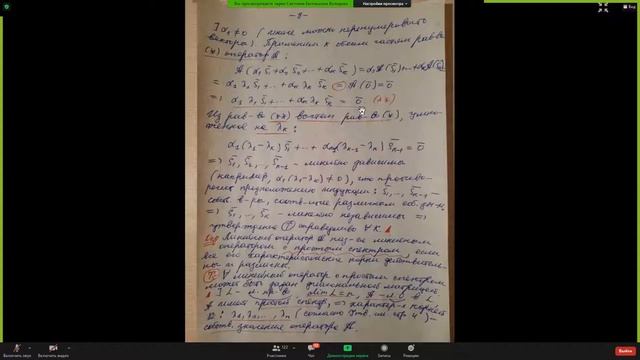 Вы просматриваете экран Системы
Настройки просмотра
-8-
α₁≠0 (иначе можно перенумеровать
вектора). Применим к обеим частям рав-ва
(*) оператор A:
A(α₁s̄₁+α₂s̄₂+...+αₖs̄ₖ)=α₁A(s̄₁)+...+αₖA(s̄ₖ)
=α₁λ₁s̄₁+...+αₖλₖs̄ₖ = A(ō)=ō
=> α₁λ₁s̄₁+...+αₖλₖs̄ₖ = ō (**)
Из рав-ва (**) вычтем рав-во (*), умно-
женное на λₖ:
α₁(λ₁-λₖ)s̄₁+...+αₖ₋₁(λₖ₋₁-λₖ)s̄ₖ₋₁=ō
=> s̄₁, s̄₂,..., s̄ₖ₋₁ - линейно зависимы
(например, α₁(λ₁-λₖ)≠0), что противо-
речит предположению индукции: s̄₁,..., s̄ₖ₋₁ -
собств. в-ра, соотв-щие различным
=> s̄₁,..., s̄ₖ - линейно независимы =>
утверждение справедливо ∀ k.
Линейный оператор A наз-ся линейным
оператором с простым спектром, если
все его характеристические корни действитель-
ны и различны.
∀ линейный оператор с простым спектром
может быть задан диагональной матрицей.
L - л. пр-во dim L=n, A - л.о. в L.
A имеет простой спектр, => характер-е корни
λ₁, λ₂,..., λₙ (согласно Утв. на стр. 4) -
собств. значения оператора A.
Включить звук
Включить видео
Участники
122
Чат
Демонстрация экрана
Реакции
Выйти